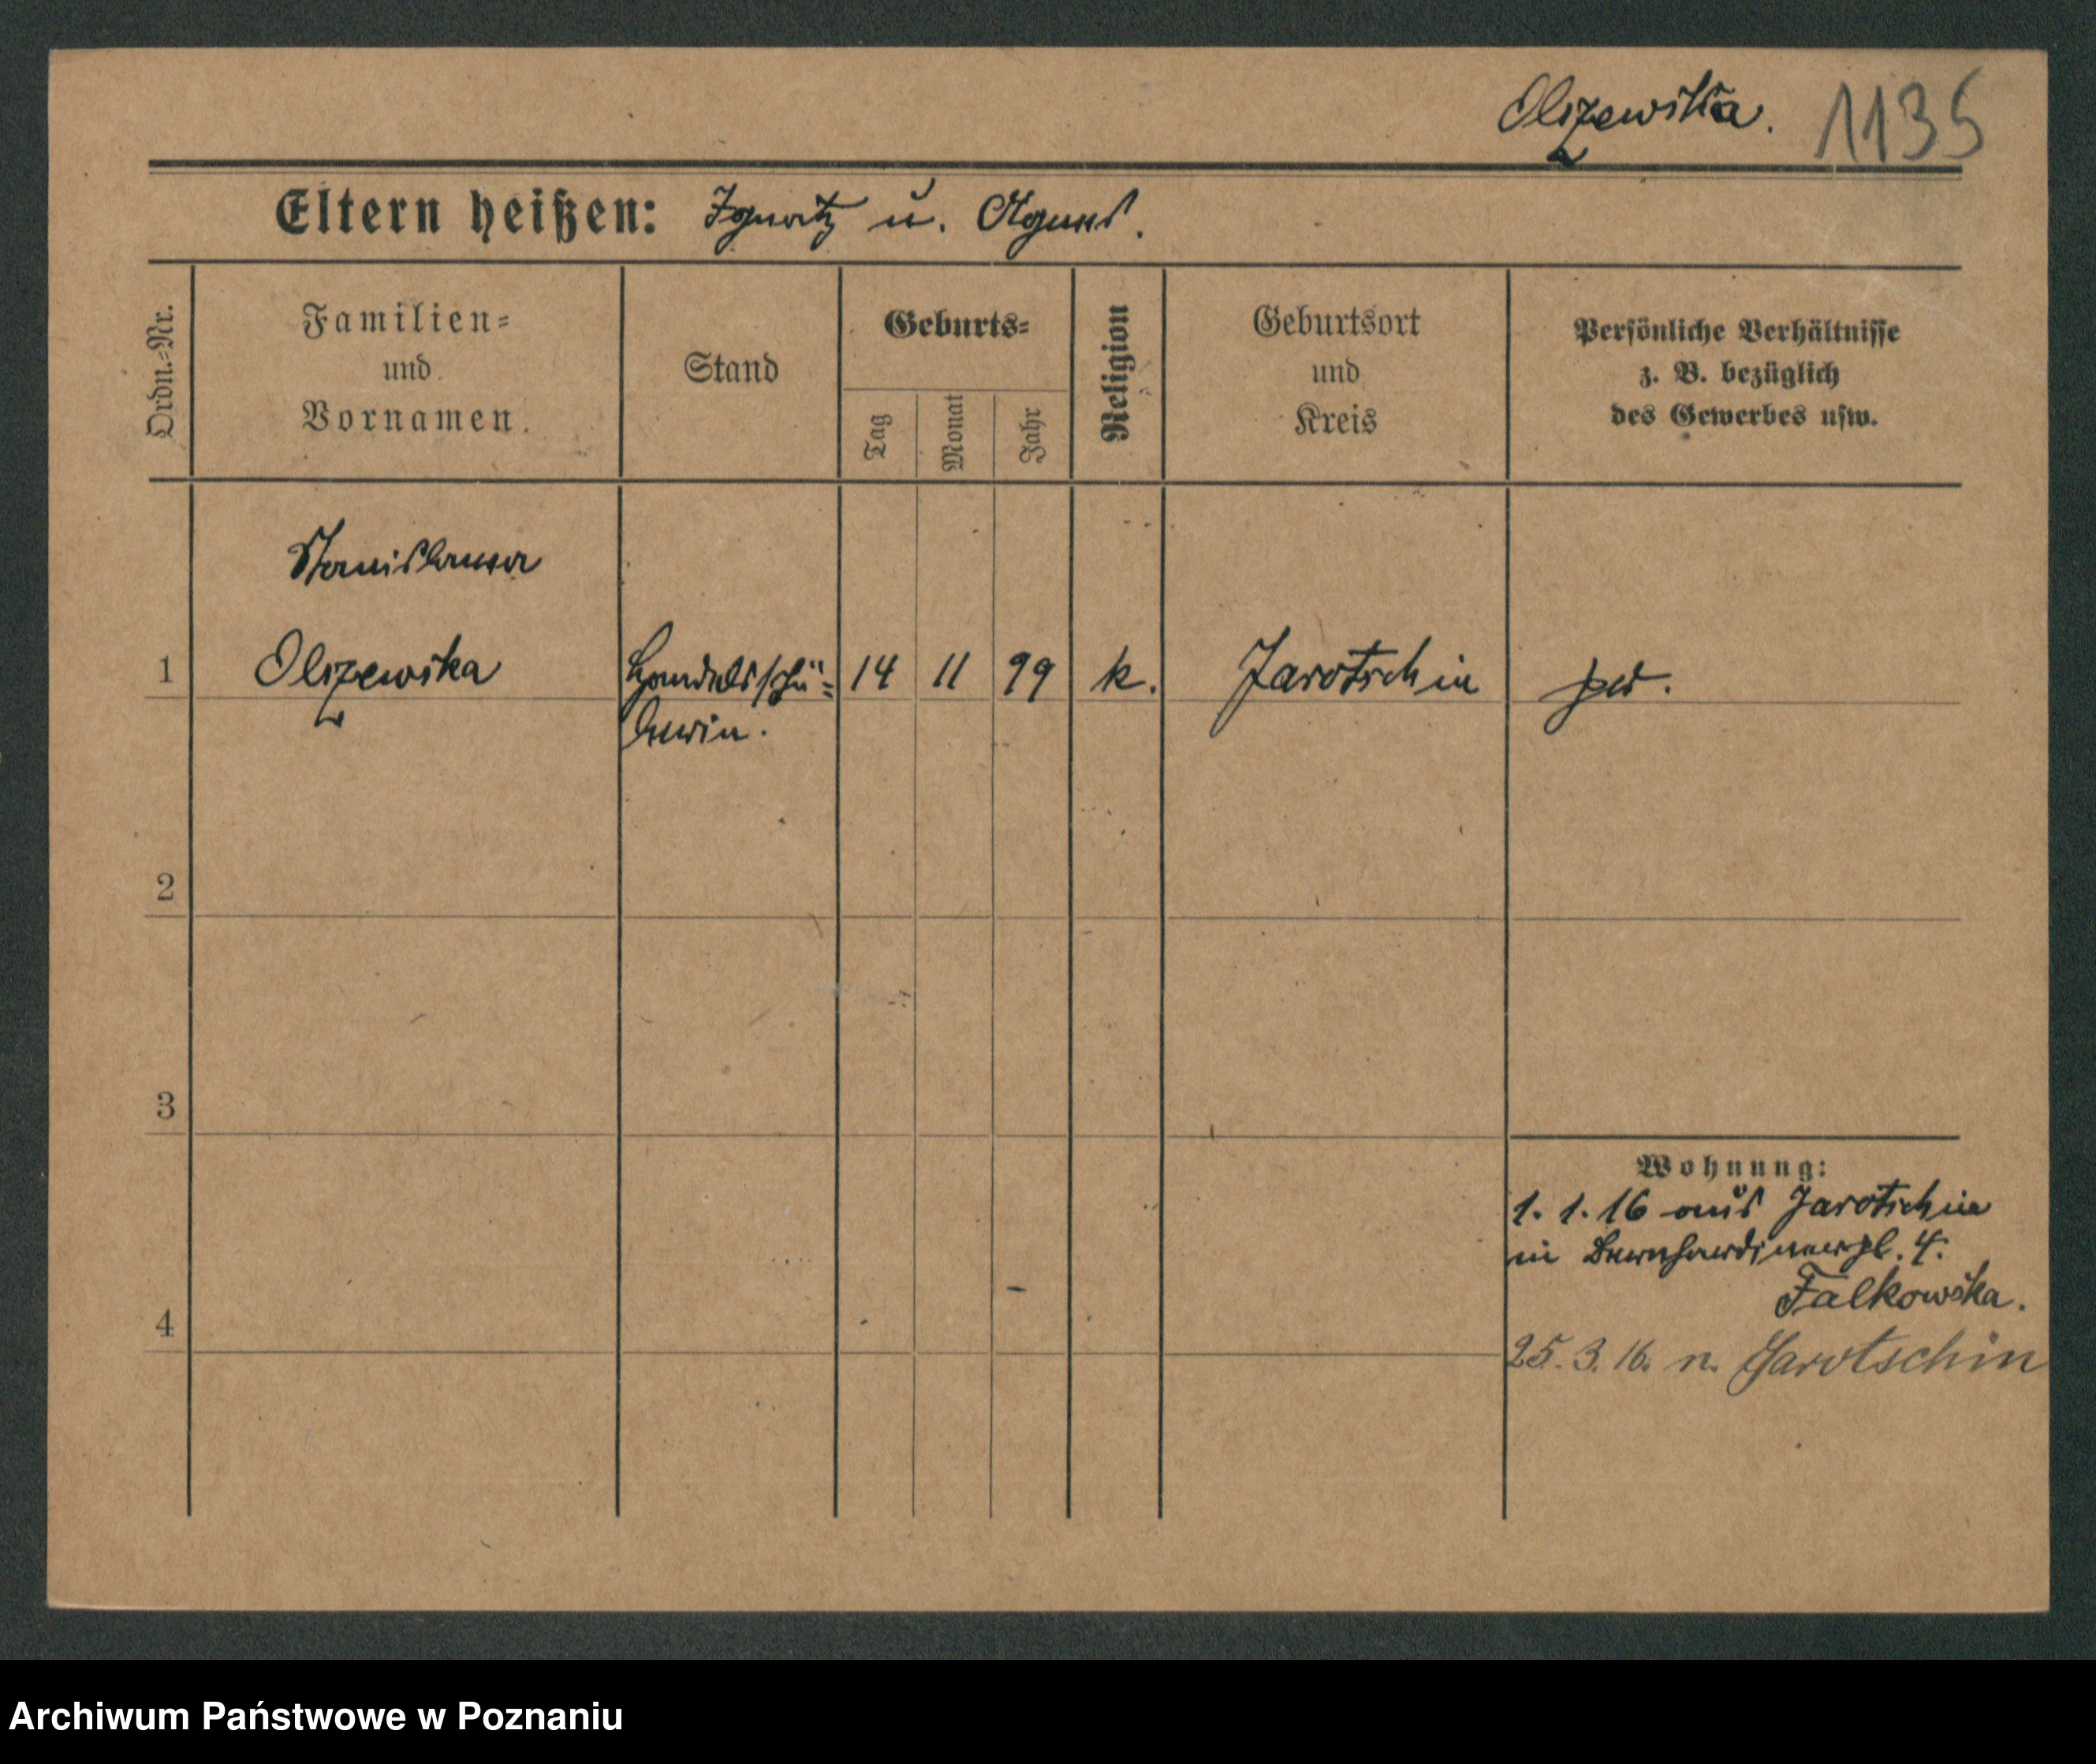 Olszewska. 1135
Eltern heißen: Ignatz u. Agnes.
Ordn.-Nr.
Familien-
und
Vornamen.
Stand
Geburts-
Tag
Monat
Jahr
Religion
Geburtsort
und
Kreis
Persönliche Verhältnisse
z. B. bezüglich
des Gewerbes usw.
Stanislawa
1 Olszewska Handelsschü- 14 11 99 k. Jarotschin
lerin.
2
3
4
Wohnung:
1. 1. 16 aus Jarotschin
in Bernhardinerpl. 4.
Falkowska.
25. 3. 16. n. Jarotschin
Archiwum Państwowe w Poznaniu